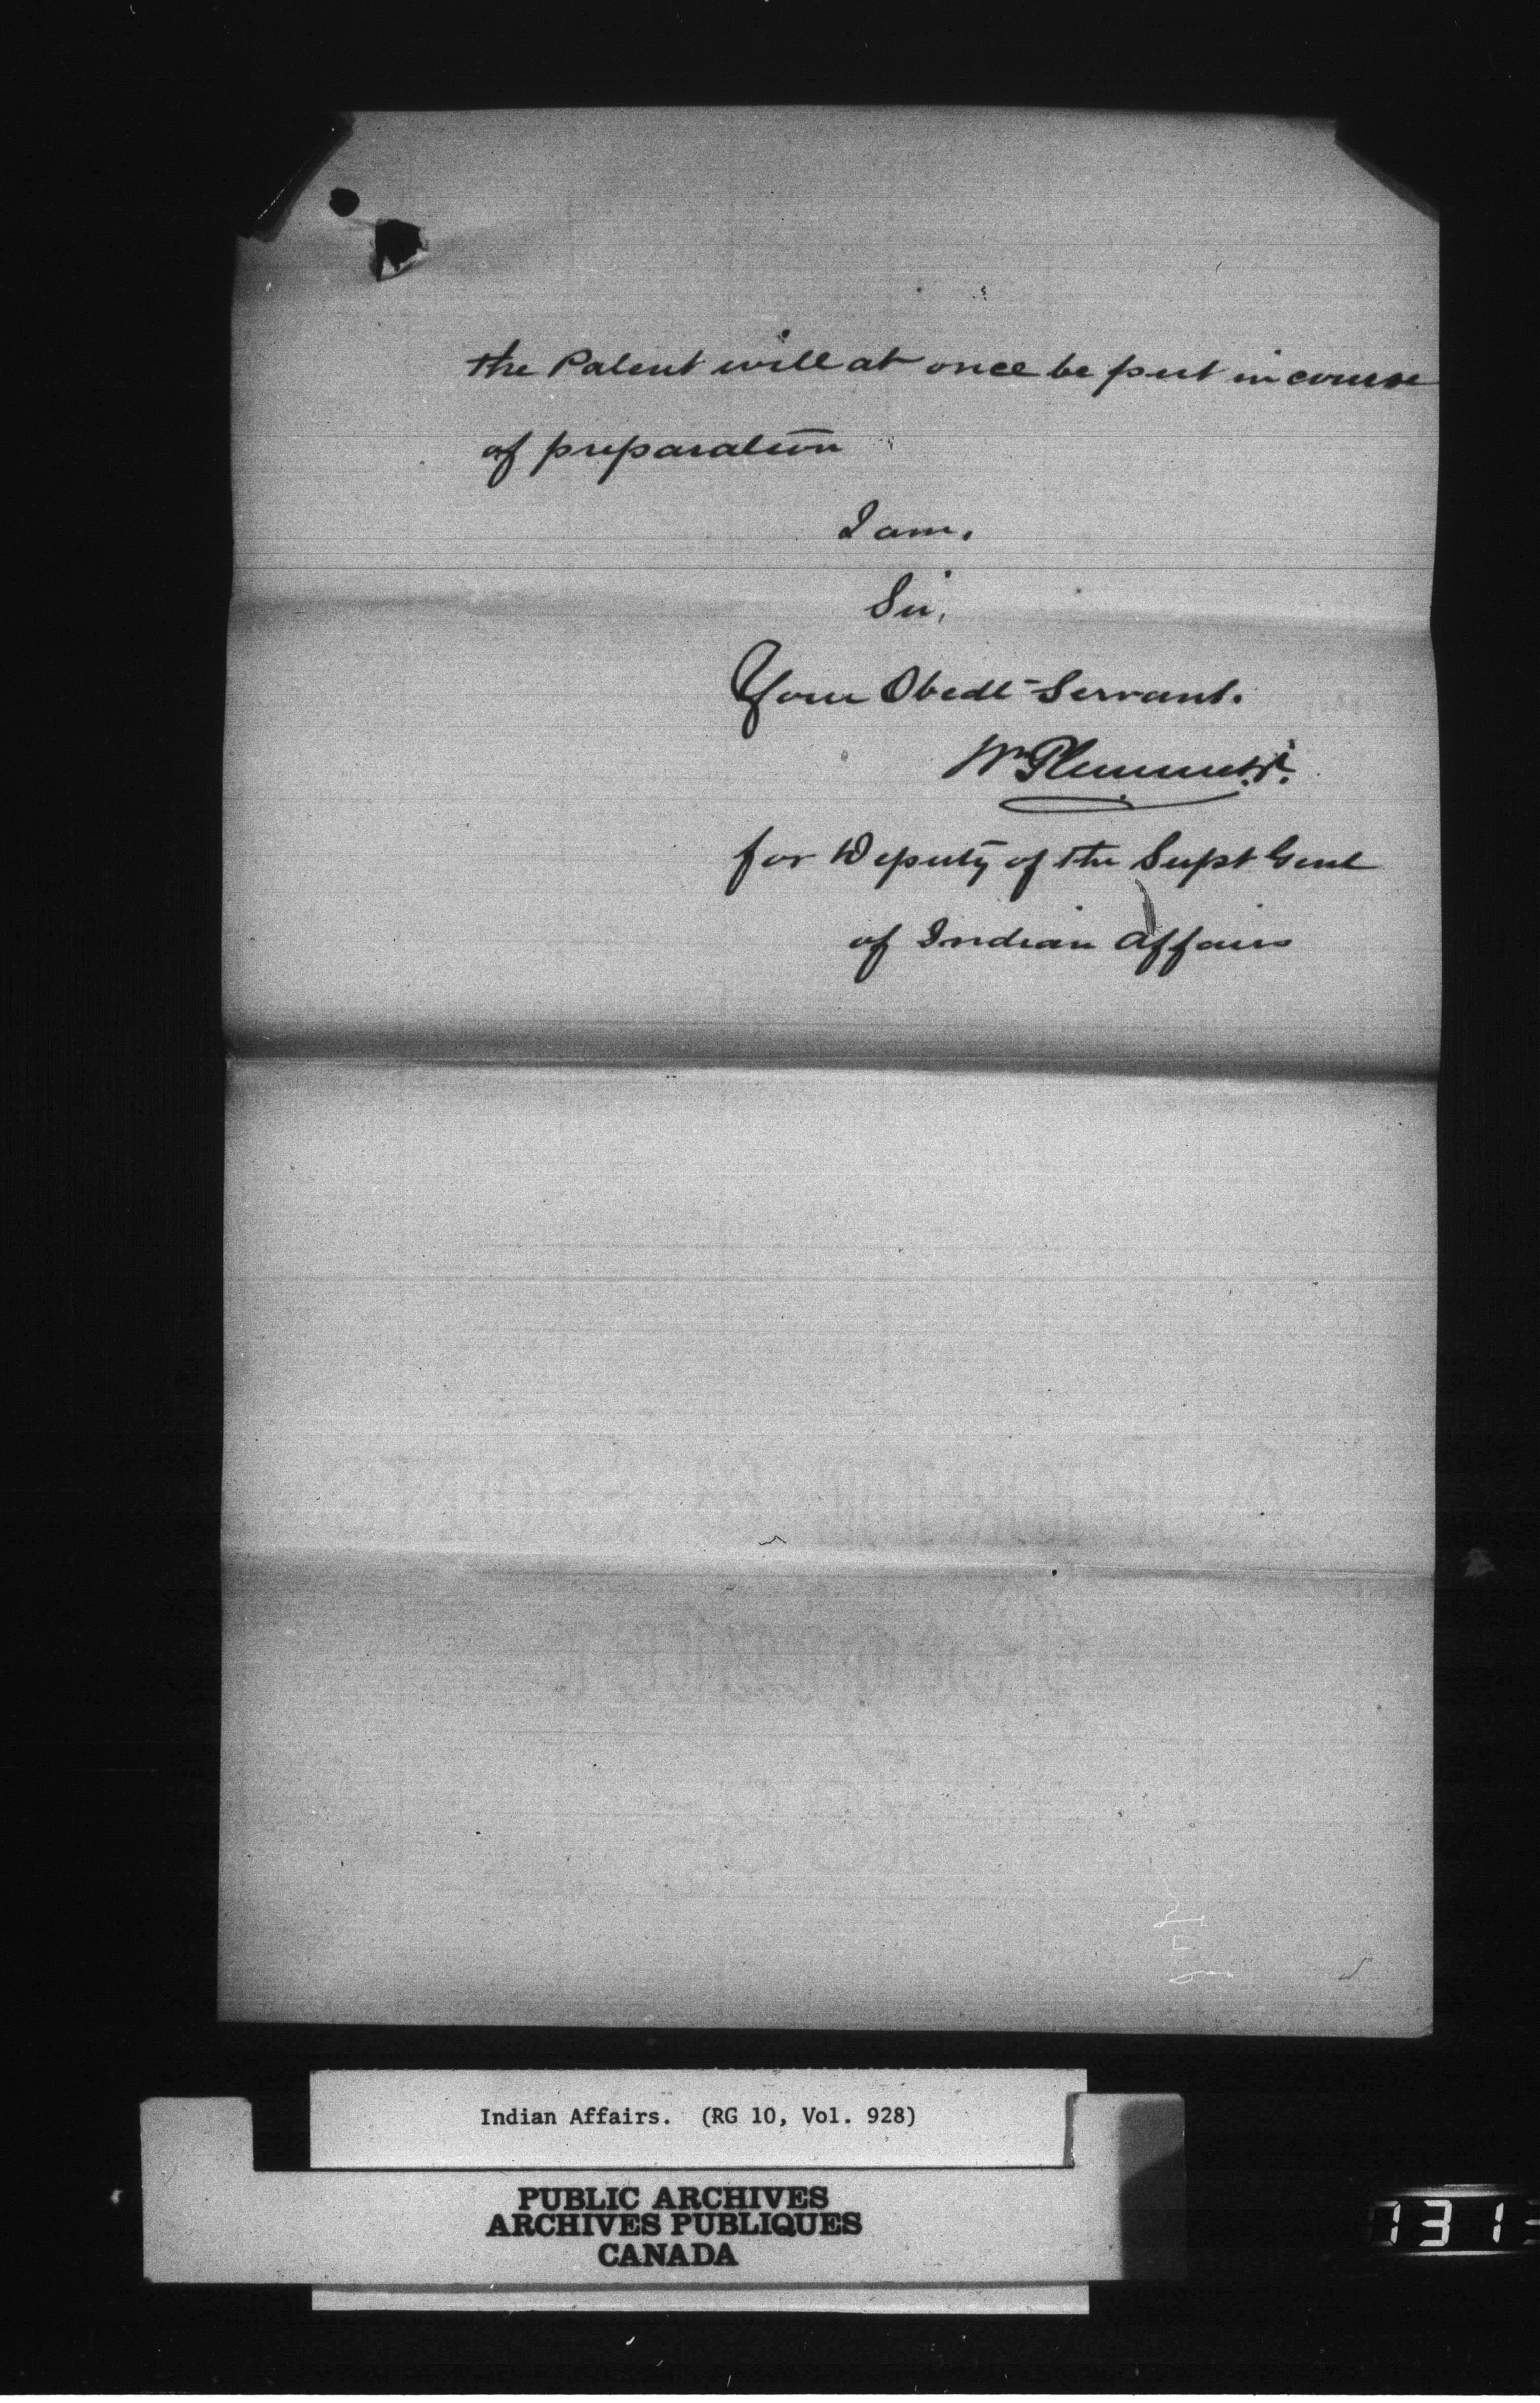 the Patent will at once be put in course
of preparation
I am,
Sir,
Your Obedt Servant.
Wm Plummer
for Deputy of the Supt Genl
of Indian Affairs
Indian Affairs. (RG 10, Vol. 928)
PUBLIC ARCHIVES
ARCHIVES PUBLIQUES
CANADA
731